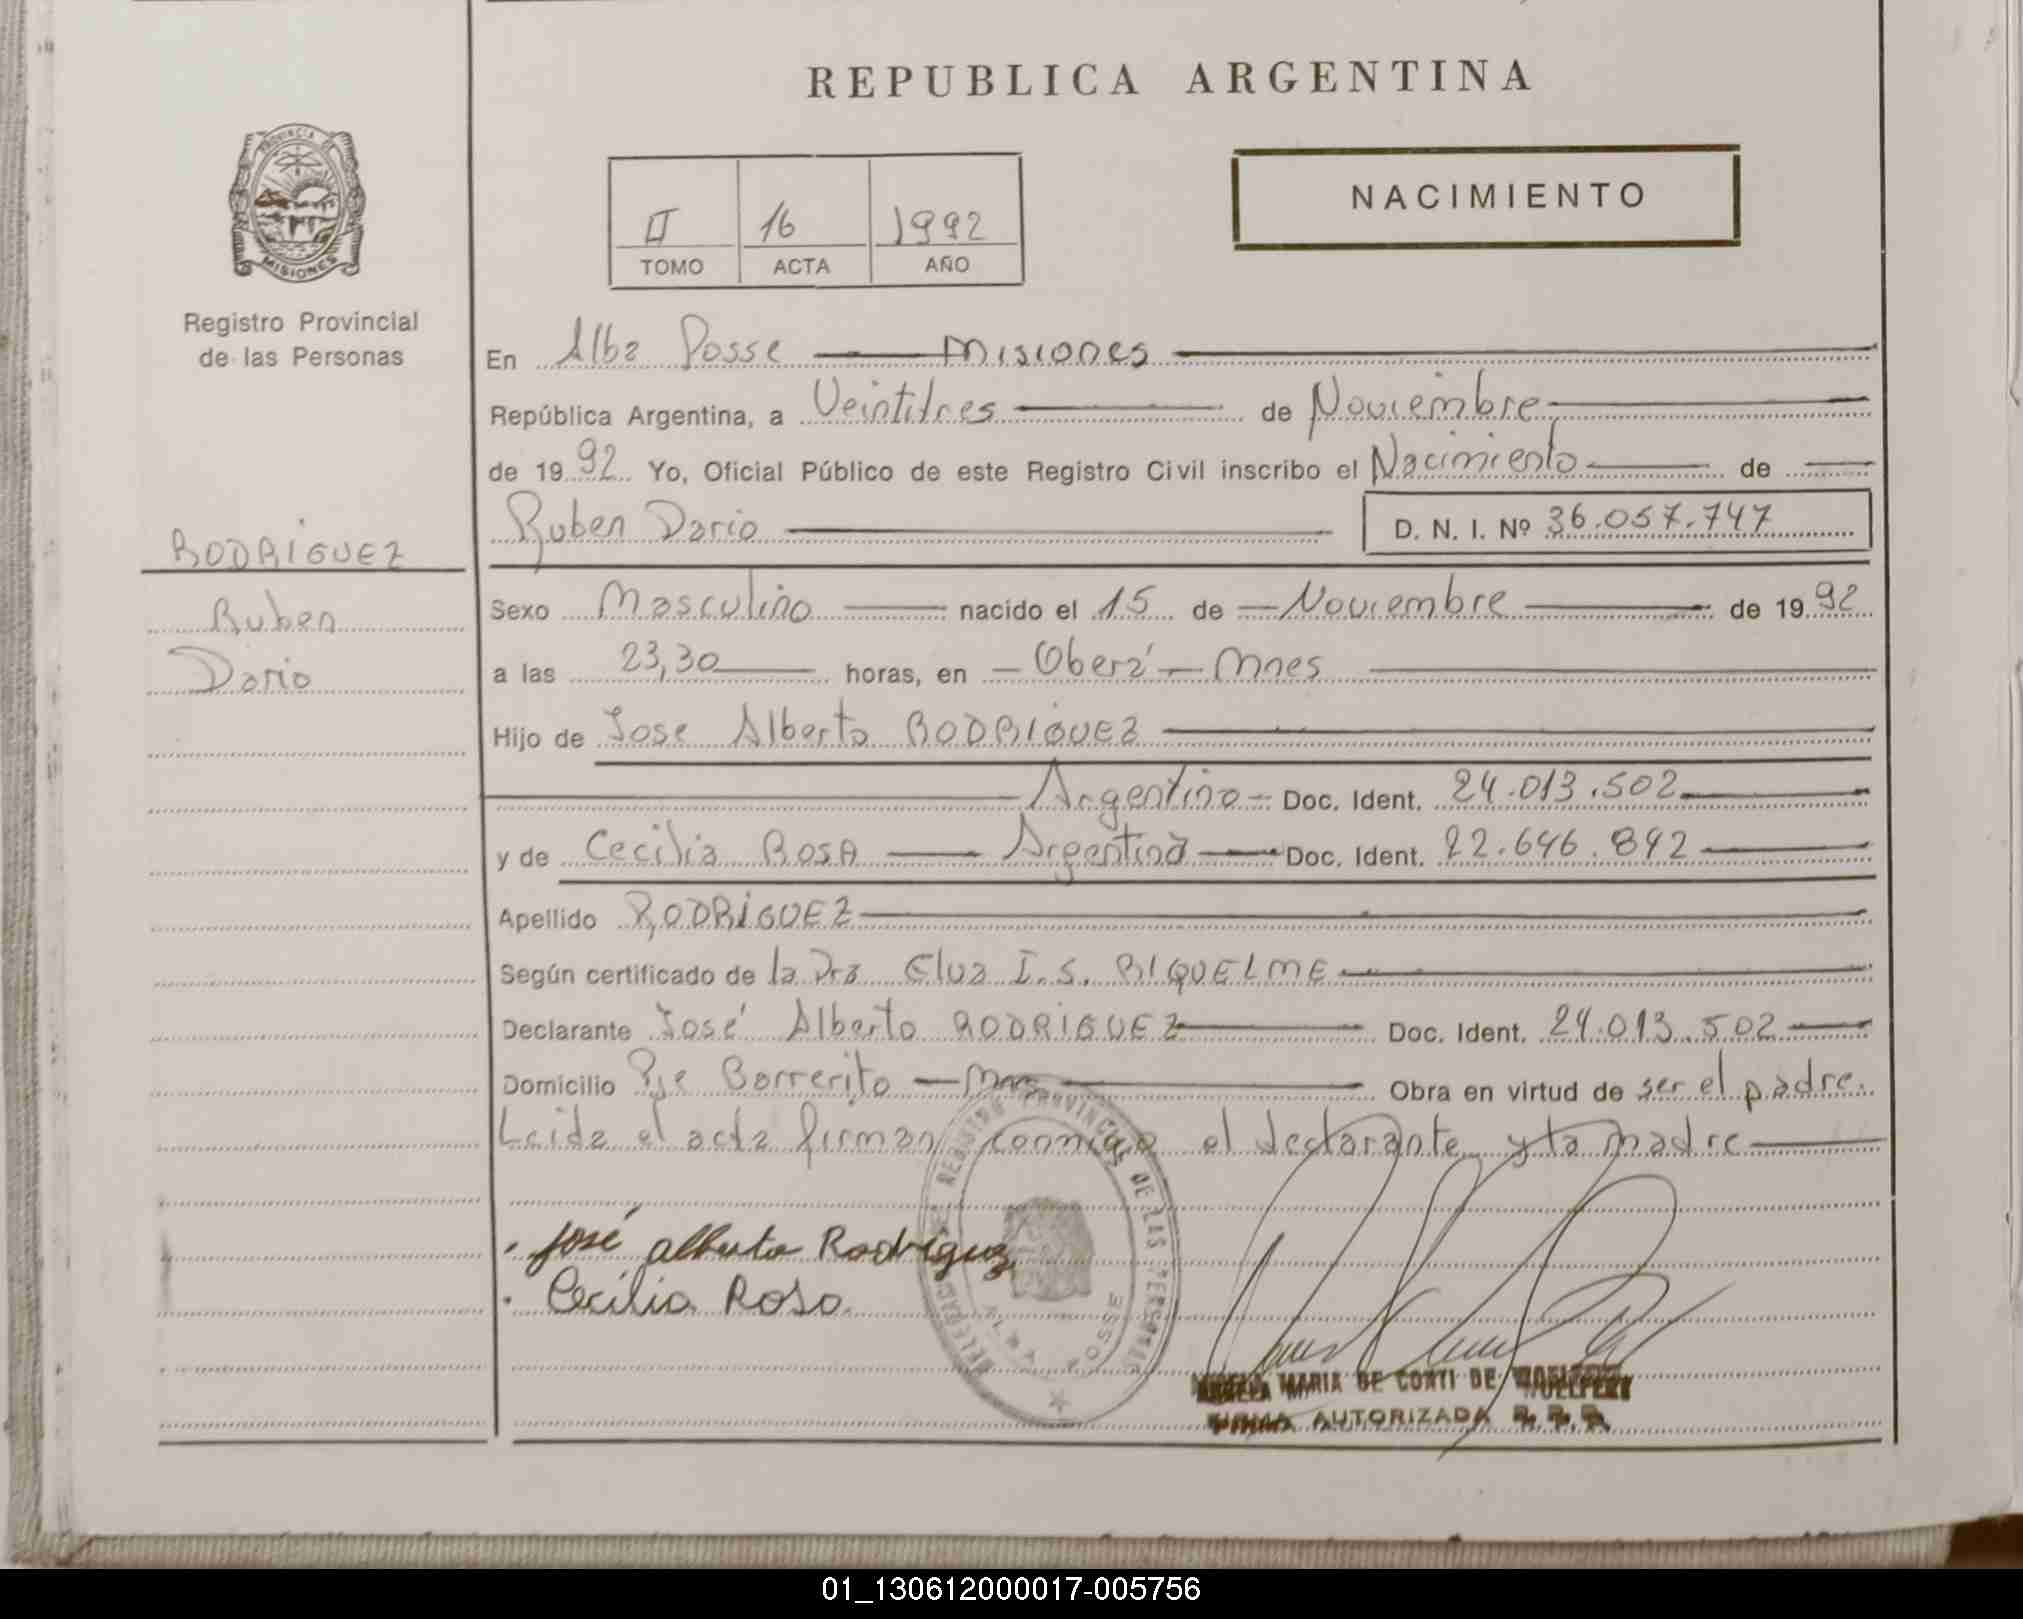 REPUBLICA ARGENTINA
NACIMIENTO
II 16 1992
TOMO ACTA AÑO
PROVINCIA DE
MISIONES
Registro Provincial
de las Personas
En Alba Posse Misiones
República Argentina, a Veintitres de Noviembre
de 1992 Yo, Oficial Público de este Registro Civil inscribo el Nacimiento de
Ruben Dario D. N. I. Nº 36.057.747
RODRIGUEZ
Ruben
Dario
Sexo Masculino nacido el 15 de Noviembre de 1992
a las 23,30 horas, en Oberá - Mnes
Hijo de Jose Alberto RODRIGUEZ
Argentino Doc. Ident. 24.013.502
y de Cecilia ROSA Argentina Doc. Ident. 22.646.892
Apellido RODRIGUEZ
Según certificado de la Dra I.S. RIQUELME
Declarante José Alberto RODRIGUEZ Doc. Ident. 24.013.502
Domicilio Pje Barrerito - Mnes Obra en virtud de ser el padre.
Leida el acta firman conmigo el declarante y la madre
José alberto Rodriguez
Cecilia Rosa
DELEGACION REGISTRO PROVINCIAL DE LAS PERSONAS
ALBA POSSE
MARIA DE CONTI DE
FIRMA AUTORIZADA R.P.P.
01_130612000017-005756